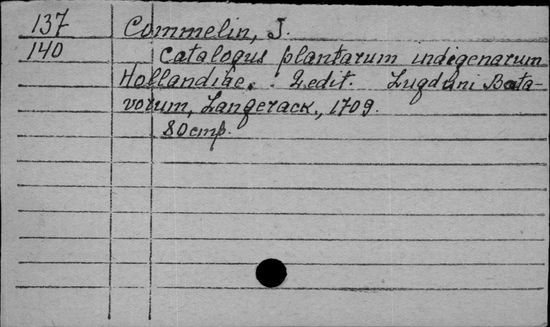 137 Commelin, J.
140 Catalogus plantarum indigenarum
Hollandiae. 2 edit. Lugduni Bata-
vorum, Langerack, 1709.
80